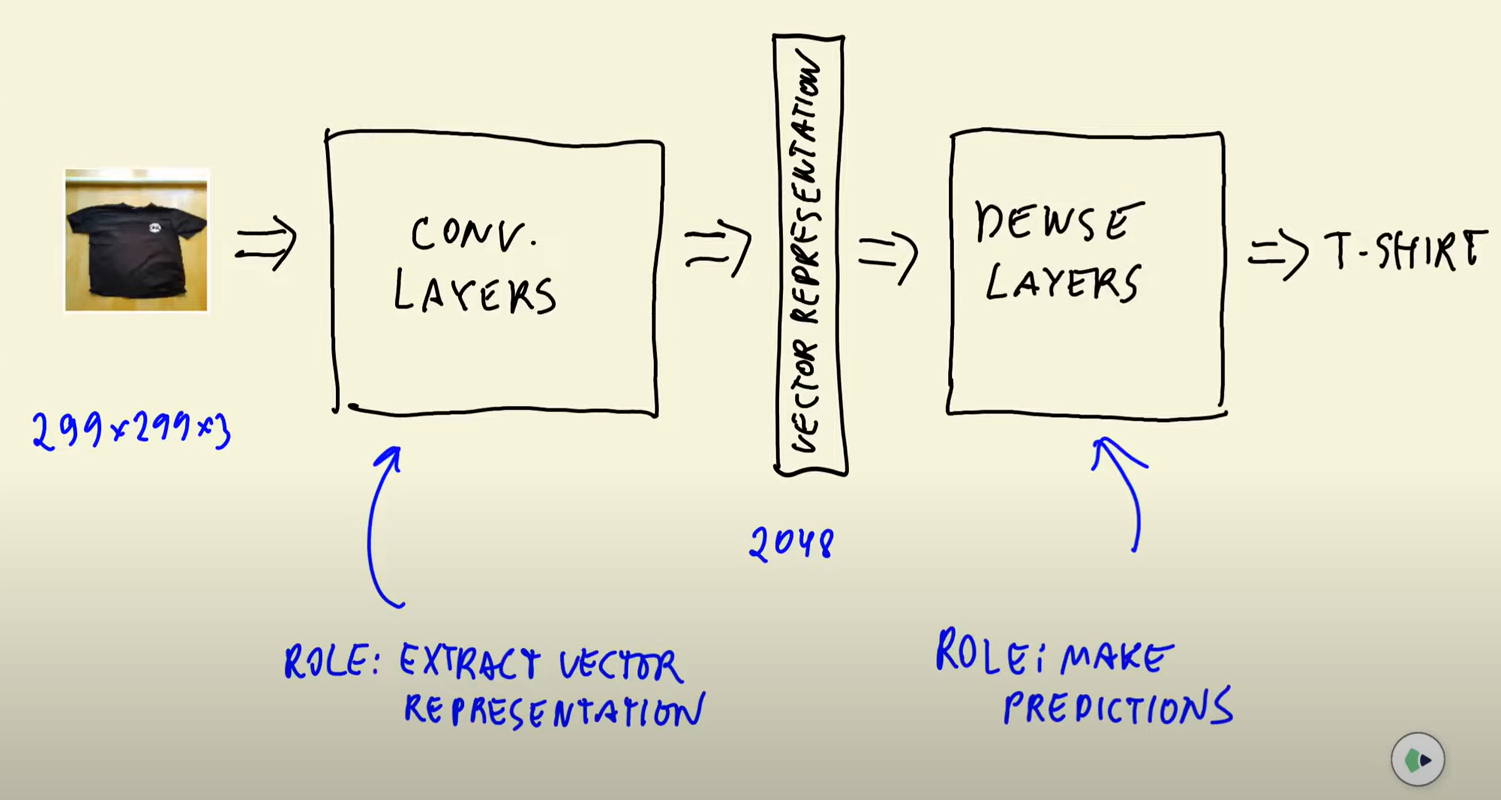 CONV.
LAYERS
VECTOR REPRESENTATION
DENSE
LAYERS
=> T-SHIRT
299×299×3
2048
ROLE: EXTRACT VECTOR
REPRESENTATION
ROLE: MAKE
PREDICTIONS